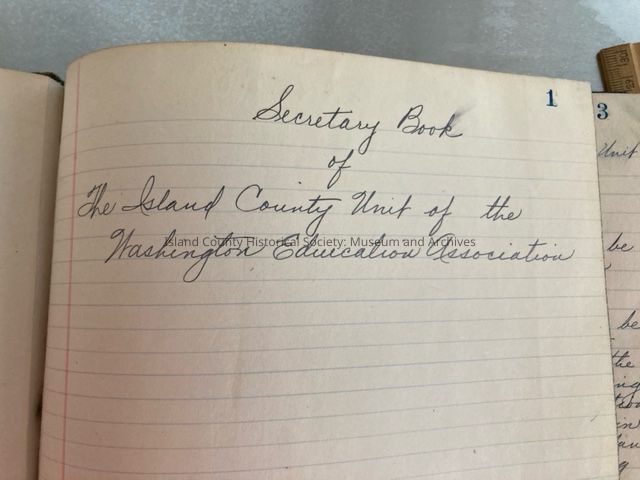 1
Secretary Book
of
The Island County Unit of the
Washington Education Association
Island County Historical Society: Museum and Archives
3
Unit
be
be
the